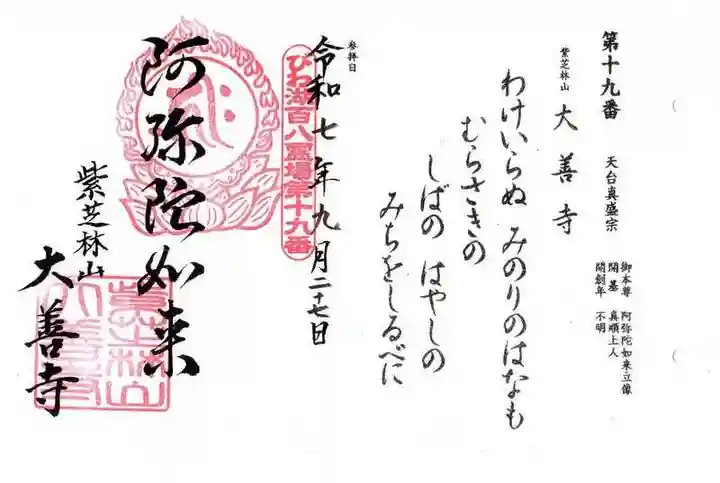 第十九番　天台真盛宗
御本尊　阿弥陀如来立像
開基　真順上人
開創年　不明
紫芝林山　大善寺
わけいらぬ　みのりのはなも
むらさきの
しばの　はやしの
みちをしるべに
参拝日
令和七年九月二十七日
びわ湖百八霊場第十九番
阿弥陀如来
紫芝林山
大善寺